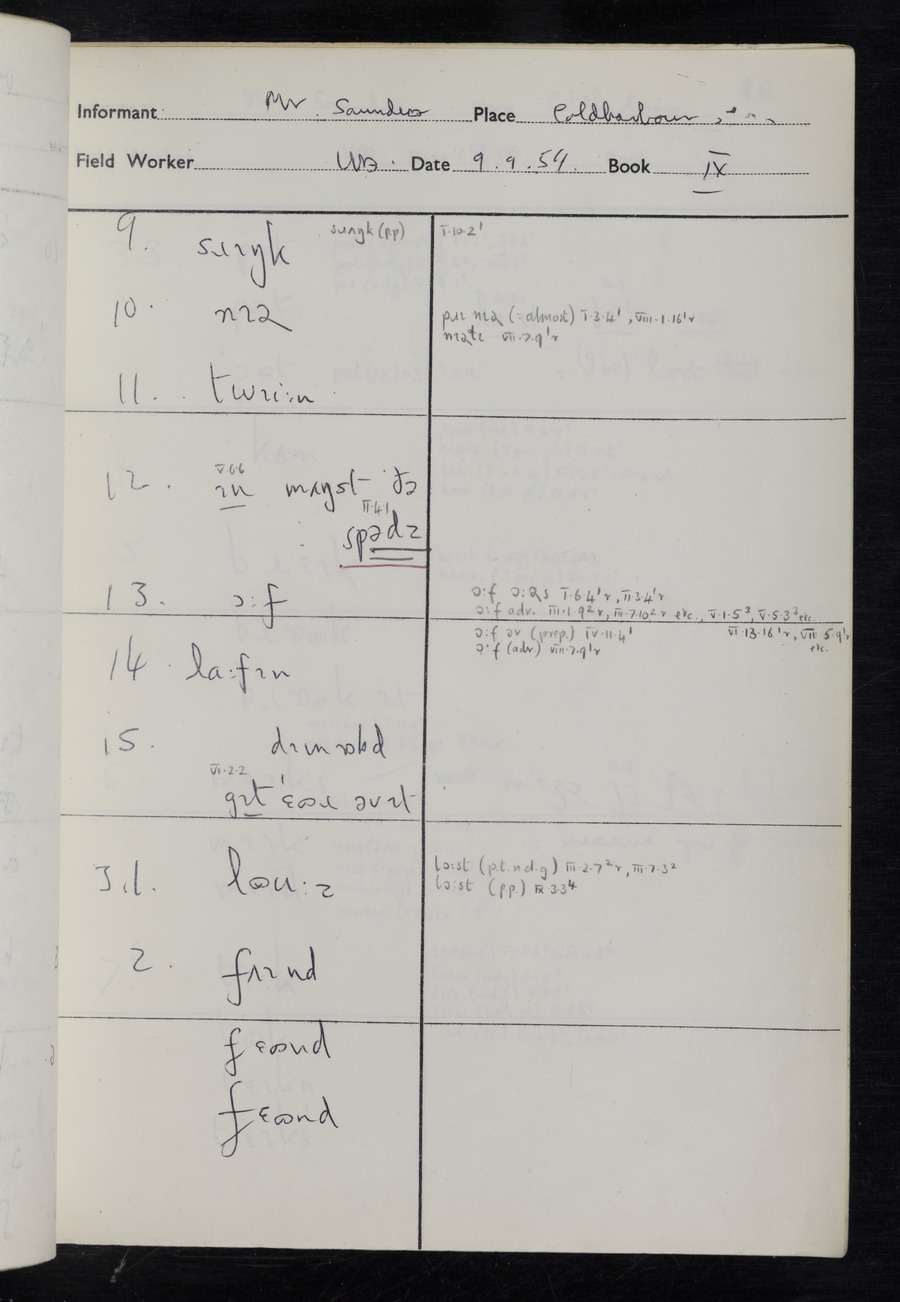 Informant Mr. Saunders Place Coldharbour
Field Worker WB. Date 9.9.54. Book IX
9. sʌɪŋk sʌŋk (pp) I.10.2'
10. nɪə pʊɪ nɪə (= almost) I.3.4', VIII.1.16'r
VII.7.9'r
11.
12. V.6.6
ɪn mɪŋst ðə
II.4.1
spədz
13. ɔ:f ɔ:f I.6.4'r, II.3.4'r
ɔ:f adv. III.1.9²r, III.7.10²r etc., V.1.5³, V.5.3³ etc
14. la:fɪn ɔ:f əv (prep.) IV.11.4' VI.13.16'r, VII 5.9'r
ɔ:f (adv) VIII.7.9'r etc.
15.
VI.2.2
gɪt əvɪt
3.1. lɒu:z lɔ:st (p.t.nd.g) III.2.7²r, III.7.3²
lɔ:st (pp.) IX 3.3⁴
2. fʌɪnd
fɛɷnd
fɛɷnd